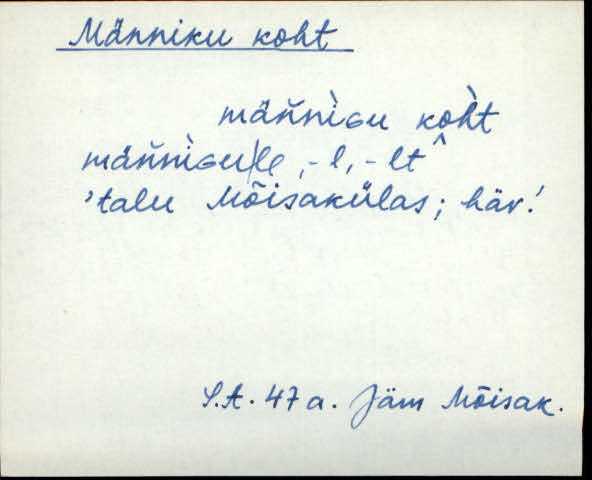 Männiku koht
män̆nìɢu kòh̀t
män̆nìɢu|le, -l, -lt
'talu Mõisakülas; häv.'
S.A. 47 a. Jäm Mõisak.